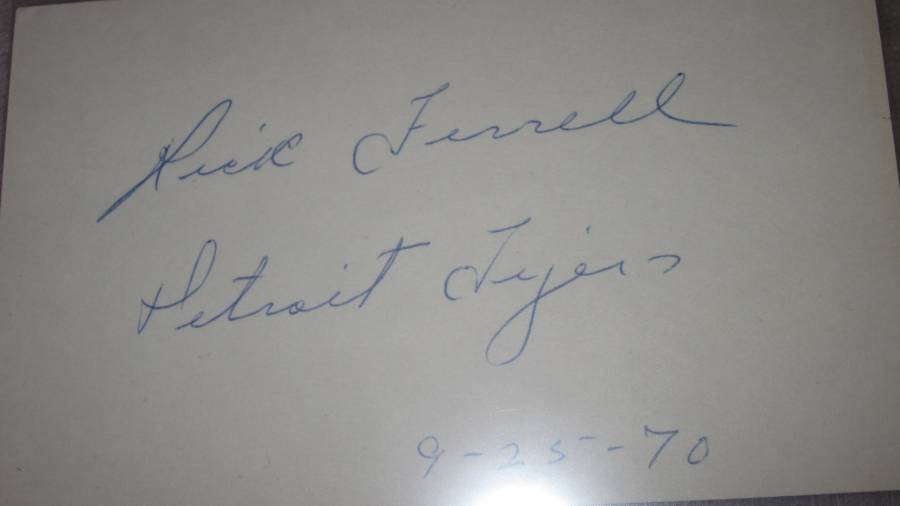 Rick Ferrell
Detroit Tigers
9-25-70